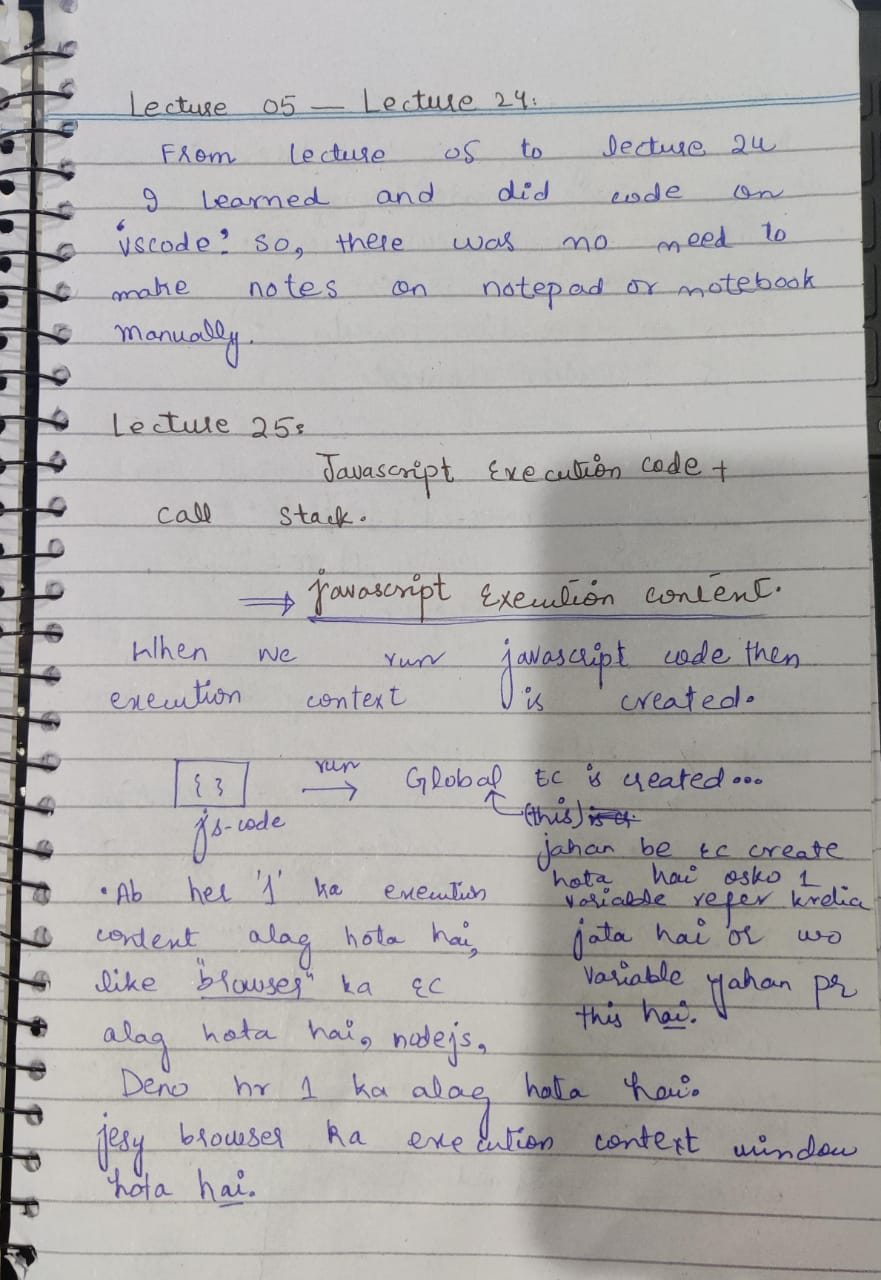 Lecture 05 — Lecture 24:
From lecture 05 to lecture 24
I learned and did code on
'vscode'. so, there was no need to
make notes on notepad or notebook
manually.
Lecture 25:
Javascript Execution code +
call stack.
⇒ javascript Execution content.
When we run javascript code then
execution context is created.
{ } run → Global EC is created...
js-code
(this)
jahan be EC create
hota hai osko 1
variable refer krdia
jata hai or wo
variable yahan pr
this hai.
• Ab her '1' ka execution
content alag hota hai,
like "browser" ka EC
alag hota hai, nodejs,
Deno hr 1 ka alag hota hai.
jesy browser ka execution context window
hota hai.